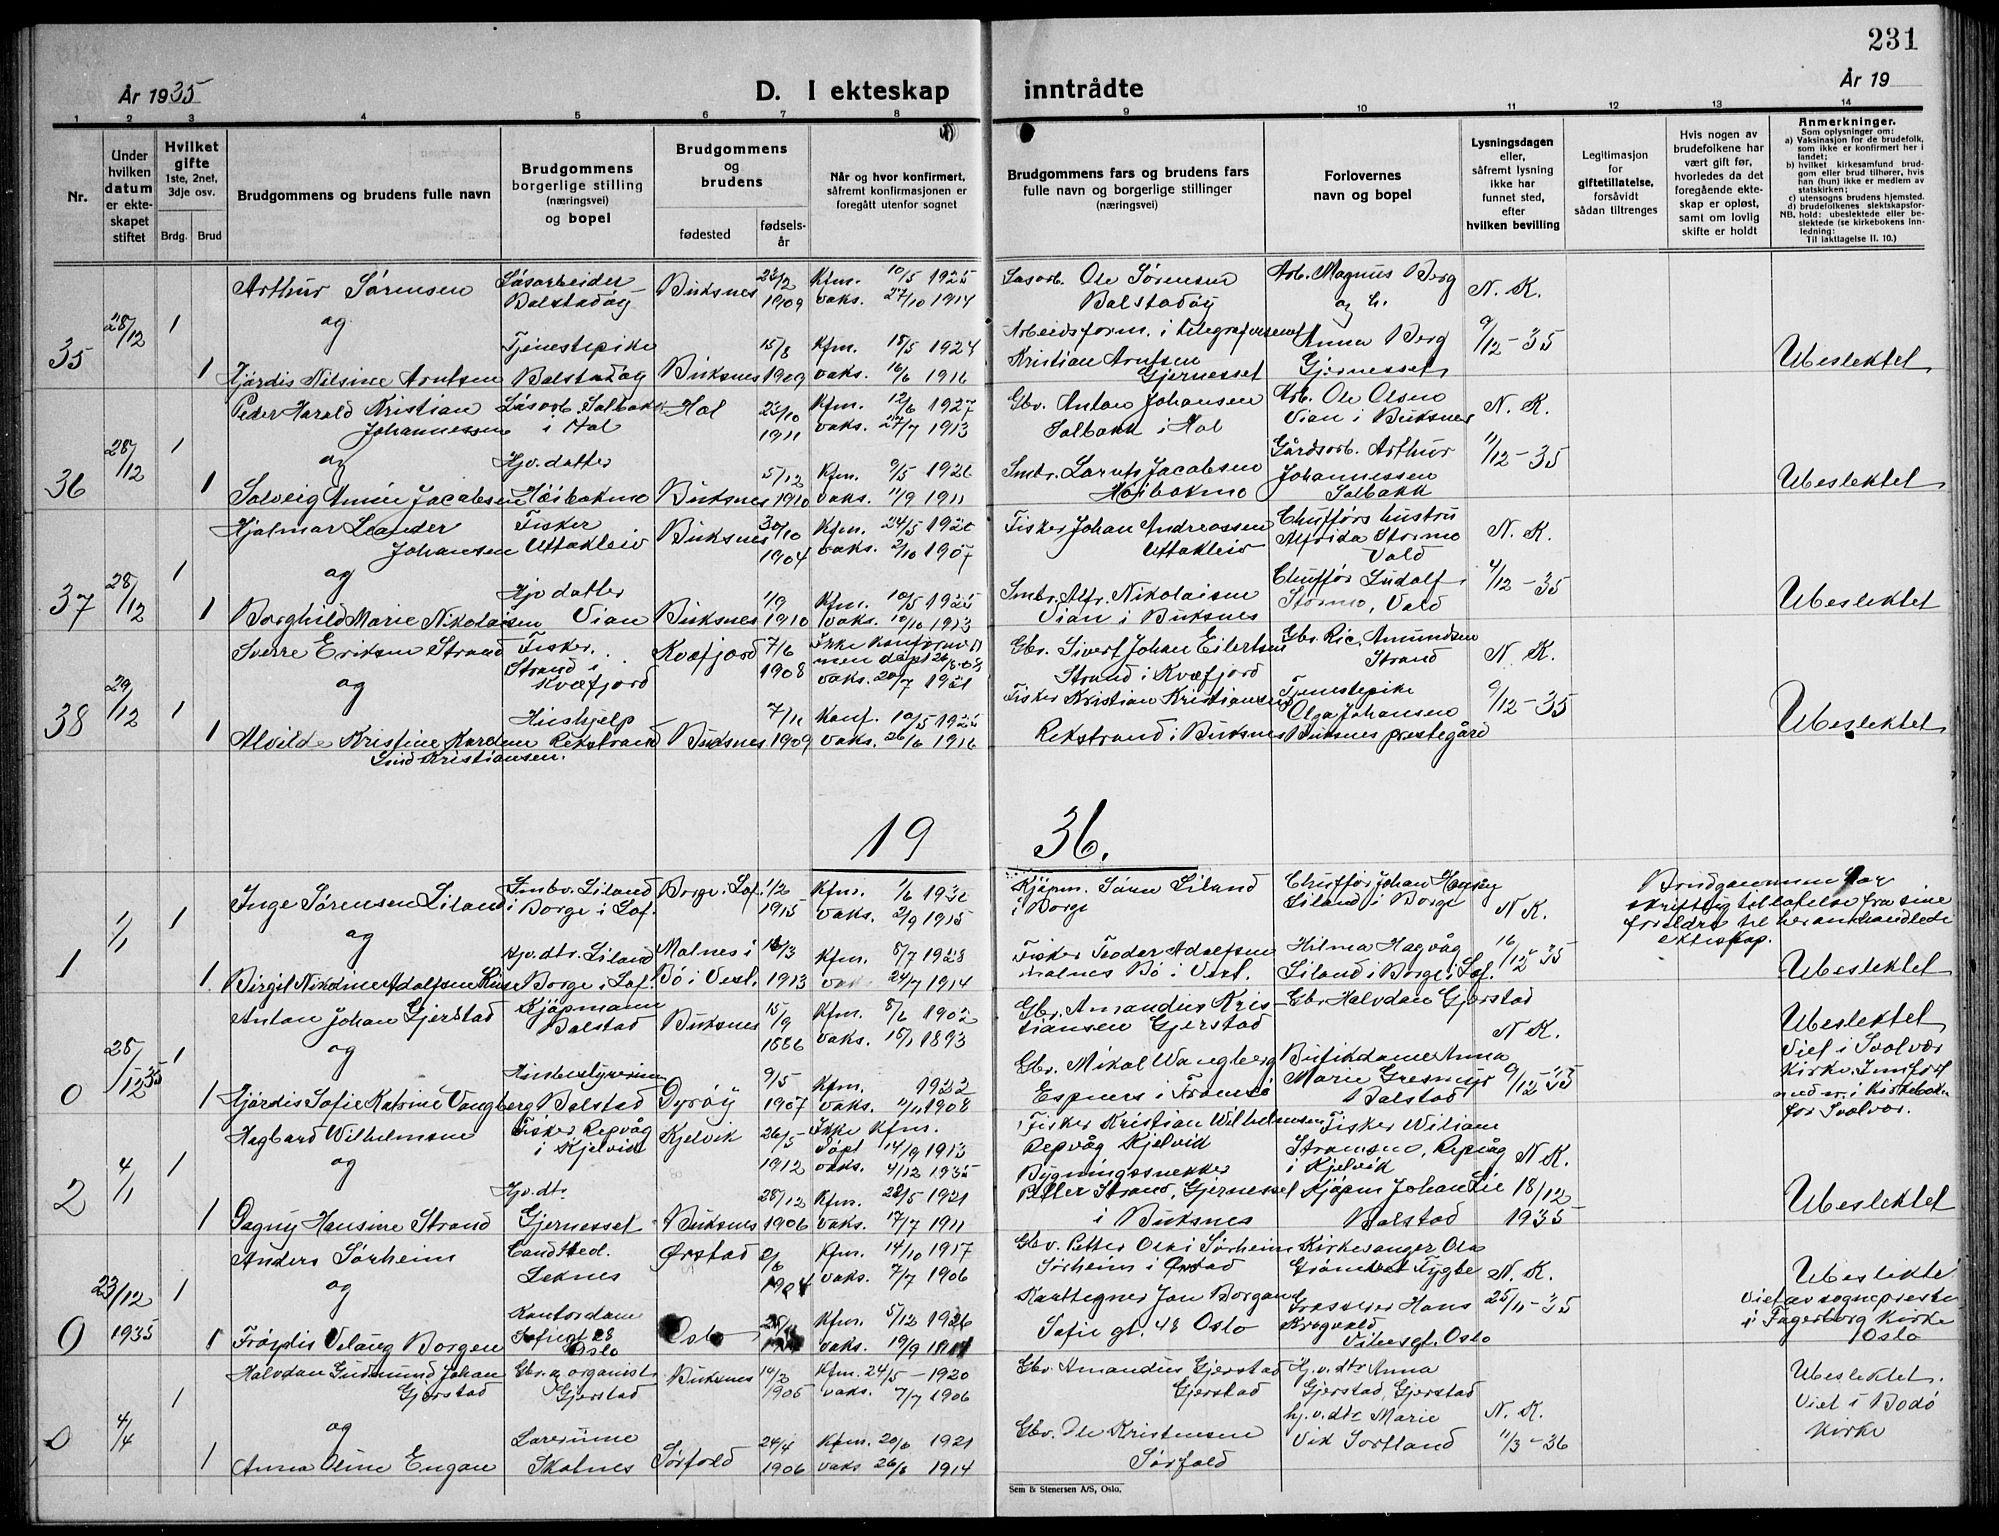 231
År 1935
D. I ekteskap inntrådte
År 19
1 2 3 4 5 6 7 8 9 10 11 12 13 14
Nr.
Under hvilken datum er ekteskapet stiftet
Hvilket gifte 1ste, 2net, 3dje osv.
Brdg. Brud
Brudgommens og brudens fulle navn
Brudgommens borgerlige stilling (næringsvei) og bopel
Brudgommens og brudens
fødested
fødselsår
Når og hvor konfirmert, såfremt konfirmasjonen er foregått utenfor sognet
Brudgommens fars og brudens fars fulle navn og borgerlige stillinger (næringsvei)
Forlovernes navn og bopel
Lysningsdagen eller, såfremt lysning ikke har funnet sted, efter hvilken bevilling
Legitimasjon for giftetillatelse, forsåvidt sådan tiltrenges
Hvis nogen av brudefolkene har vært gift før, hvorledes da det foregående ekteskap er opløst, samt om lovlig skifte er holdt
Anmerkninger.
Som oplysninger om:
a) Vaksinasjon for de brudefolk, som ikke er konfirmert her i landet;
b) hvilket kirkesamfund brudgom eller brud tilhører, hvis han (hun) ikke er medlem av statskirken;
c) utensogns brudens hjemsted.
d) brudefolkenes slektskapsforhold: ubeslektede eller beslektede (se kirkebokens innledning:
NB. Til iakttagelse II. 10.)
35 28/12 1
Arthur Sørensen
Balstadøy
Buksnes 1909
Kfm. 10/5 1925
vaks. 27/10 1914
Ole Sørensen
Balstadøy
Arb. Magnus Berg
og h.
N. K.
og
1 Hjørdis Nilsine Arntsen
Tjenestepike
Balstadøy
Buksnes 15/8 1909
Kfm. 15/5 1924
vaks. 16/6 1916
Arbeidsform. i telegrafvesenet
Kristian Arntsen
Gjernesset
Anna Berg
Gjernesset
9/12-35
Ubeslektet
36 28/12 1
Peder Harald Kristian
Johannessen
Solbakk
i Hol
Hol 23/10 1911
Kfm. 12/6 1927
vaks. 27/7 1913
Gbr. Anton Johansen
Solbakk i Hol
Arb. Ole Olsen
Vian i Buksnes
N. K.
og
1 Solveig Jacobsen
Hjv. datter
Buksnes 5/12 1910
Kfm. 9/5 1926
vaks. 11/9 1911
Jacobsen
Gårdsarb. Arthur
Johannessen
Solbakk
11/12-35
Ubeslektet
37 28/12 1
Hjalmar Leander
Johansen
Fisker
Uttakleiv
Buksnes 30/10 1904
Kfm. 24/5
vaks. 2/10 1907
Fisker Johan Andreassen
Uttakleiv
Chufførs hustru
Alfrida Stormo
N. K.
og
1 Borghild Marie Nikolaisen
Hjv datter
Vian
Buksnes 1910
Kfm. 10/5 1925
vaks. 10/10 1913
Smbr. Alfr. Nikolaisen
Vian i Buksnes
Chuffør Ludolf
Stormo,
4/12-35
Ubeslektet
38 29/12 1
Sverre Eriksen Strand
Fisker.
Strand i
Kvæfjord
Kvæfjord 7/6 1908
Ikke
men døpt
vaks. 1921
Gbr. Sivert Johan Eilertsen
Strand i Kvæfjord
Gbr. Ric. Amundsen
Strand
N. K.
og
1 Alvilde Kristine Karoline
Kristiansen.
Hushjelp
Rekstrand
Buksnes 7/11 1909
Konf. 10/5 1925
vaks. 26/6 1916
Fisker Kristian Kristiansen
Rekstrand i Buksnes
Tjenestepike
Olga Johansen
Buksnes prestegård
9/12-35
Ubeslektet
19 36.
1 1/1 1
Inge Sørensen Liland
Smbr. Liland
i Borge i Lof.
Borge i Lof. 1/2 1915
Kfm. 1/6
vaks. 2/9 1915
Kjøpm. Søren Liland
i Borge
Chuffør Johan Hansen
Liland i Borge
N K.
Brudgommen har
skriftlig tillatelse fra sine
foreldre til her omhandlede
ekteskap.
og
1 Birgit Nikoline Adolfsen
Hjv. dtr. Liland
Borge i Lof.
Malnes i
Bø i Vest. 1913
Kfm. 8/7 1928
vaks. 24/7 1914
Fisker Teodor Adolfsen
Malnes Bø i Vest.
Hilma Hagvåg
Liland i Borge i Lof.
16/12 35
Ubeslektet
0 28/12 35 1
Anton Johan Gjerstad
Kjøpmann
Balstad
Buksnes 15/9 1886
Kfm. 1902
vaks. 1893
Gbr. Amandus Kristiansen Gjerstad
Gbr Halvdan Gjerstad
N K.
Ubeslektet
Viet i Svolvær
Kirke. Innført
med nr. i kirkeboken
for Svolvær.
og
1 Hjørdis Sofie Katrine Vangberg
Husbestyrerinne
Balstad
Dyrøy 9/5 1907
Kfm. 1922
vaks. 1908
Gbr. Mikal Wangberg
Espnes i Tromsø
Butikdame Anna
Marie
Balstad
9/12-35
2 4/1 1
Hagbard Wilhelmsen
Fisker Repvåg
i Kjelvik
Kjelvik 26/5 1912
Ikke Kfm.
Døpt 14/9 1913
vaks. 4/12 1935
Fisker Kristian Wilhelmsen
Repvåg Kjelvik
Fisker Wiliam
Repvåg
i Kjelvik
N K.
og
1 Dagny Hansine Strand
Hjv. dtr.
Gjernesset
Buksnes 28/12 1906
Kfm. 1921
vaks. 17/7 1911
Bygningssnekker
Peter Strand, Gjernesset
i Buksnes
Kjøpm Johan Lie
Balstad
18/12 1935
Ubeslektet
0 23/12 1935 1
Anders Sørheim
Cand. Med.
Leknes
Ørstad
Kfm. 14/10 1917
vaks. 7/7 1906
Gbr. Petter Sørheim
Sørheim i Ørstad
Kirkesanger
N. K.
Ubeslektet
Viet av sogneprest
i Fagerborg kirke
Oslo
og
1 Frøydis Borgen
Kontordame
Sofiegt
Oslo
Oslo
Kfm. 5/12 1926
vaks. 19/9
Karttegner Jon Borgen
Sofie gt. 48 Oslo
Hans
Krogvold
Oslo
25/11-35
0 4/4 1
Halvdan Gudmund Johan
Gjerstad
Gbr. og organist
Gjerstad
Buksnes 14/2 1905
Kfm. 24/5-1920
vaks. 7/7 1906
Gbr. Amandus Gjerstad
Gjerstad
Hj.v.dtr Anna
Gjerstad, Gjerstad
N. K.
Ubeslektet.
Viet i Bodø
kirke
og
1 Anna Oline Engan
Lærerinne
Skotnes
Sørfold 24/4 1906
Kfm. 20/6 1921
vaks 26/6 1914
Gbr. Ole Kristensen
Sørfold
hj.v.dtr Marie
Vik Sortland
11/3-36
Sem & Stenersen A/S, Oslo.